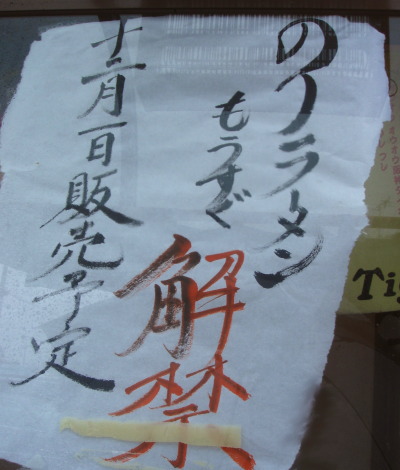 のりラーメン
もうすぐ
解禁
十二月一日販売予定
Tig